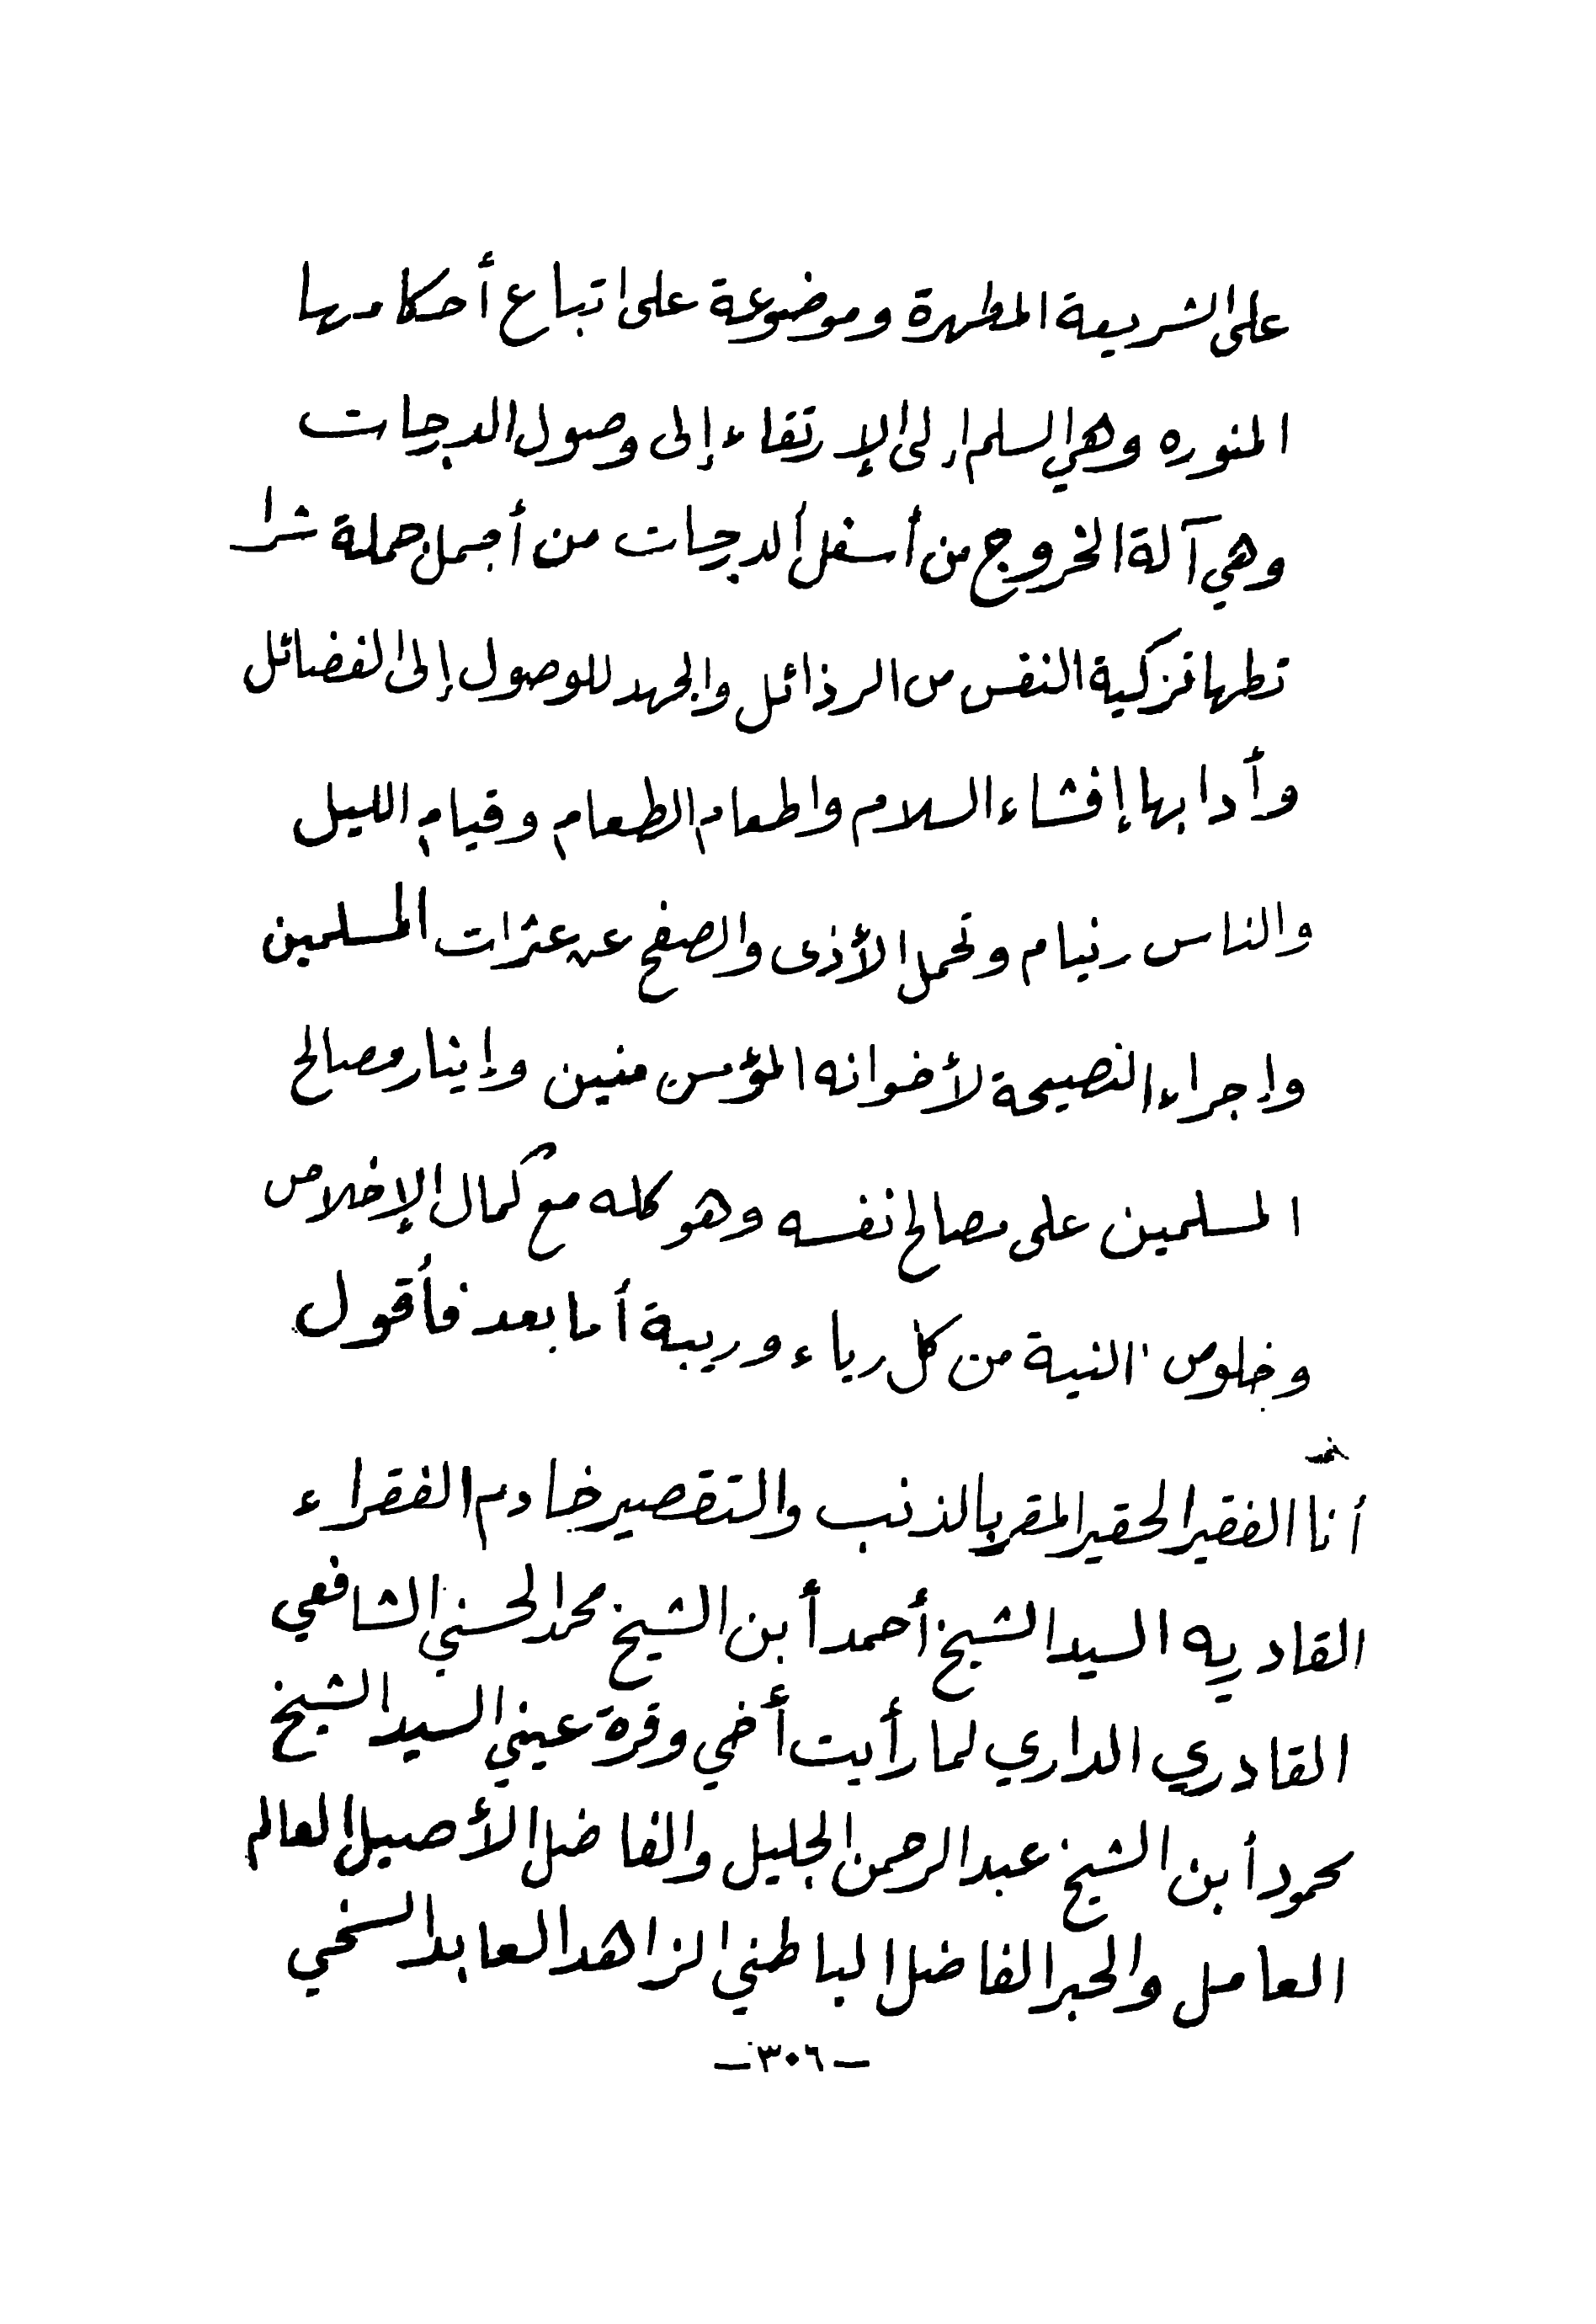 على الشريعة المطهرة وموضوعة على اتباع أحكامها
المنوره وهي السلم إلى الإرتقاء إلى وصول الدرجات
وهي آلة الخروج من أسفل الدرجات من أجمل جملة شرا
تطها تزكية النفس من الرذائل والجهد للوصول إلى الفضائل
وأدابها إفشاء السلام واطعام الطعام وقيام الليل
والناس نيام وتحمل الأذى والصفح عن عثرات المسلمين
وإجراء النصيحة لأخوانه المؤمنين وإيثار مصالح
المسلمين على مصالح نفسه وهو كله مع كمال الإخلاص
وخلوص النية من كل رياء وريبة أما بعد فأقول
أنا الفقير الحقير المقر بالذنب والتقصير خادم الفقراء
القاديه السيد الشيخ أحمد أبن الشيخ محمد الحسني الشافعي
القادري الداري لما رأيت أخي وقرة عيني السيد الشيخ
محمود أبن الشيخ عبد الرحمن الجليل والفاضل الأصيل العالم
العامل والحبر الفاضل الباطني الزاهد العابد السخي
—٣٠٦—